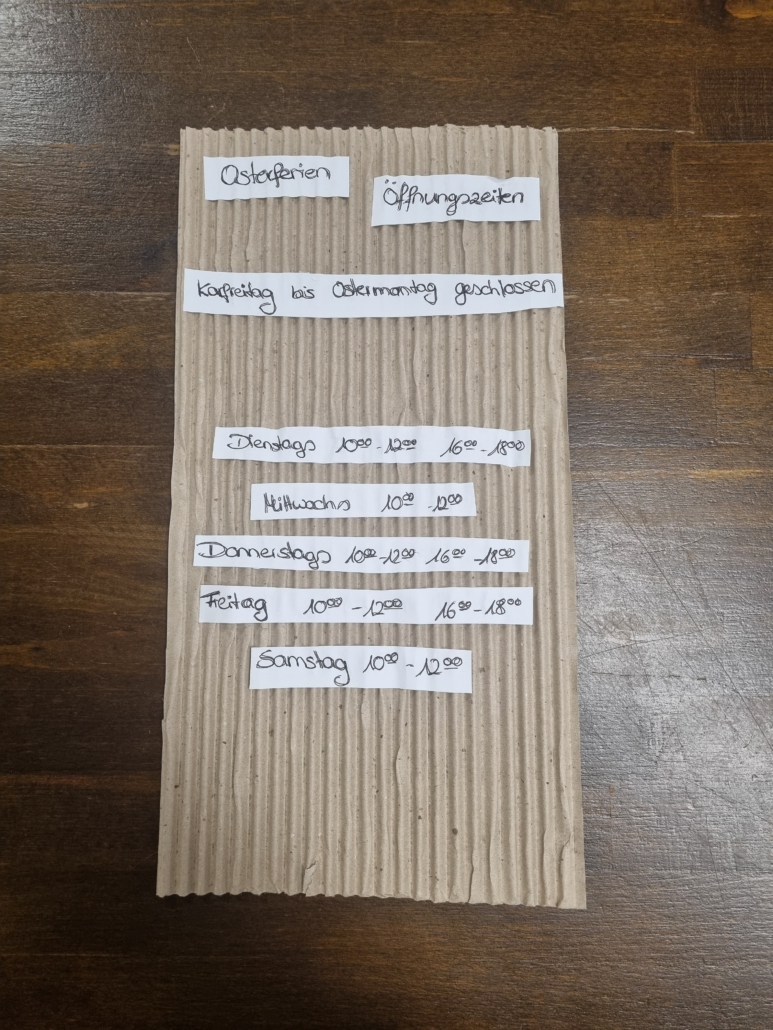 Osterferien
Öffnungszeiten
Karfreitag bis Ostermontag geschlossen
Dienstags 10⁰⁰ - 12⁰⁰ 16⁰⁰ - 18⁰⁰
Mittwochs 10⁰⁰ - 12⁰⁰
Donnerstags 10⁰⁰ - 12⁰⁰ 16⁰⁰ - 18⁰⁰
Freitag 10⁰⁰ - 12⁰⁰ 16⁰⁰ - 18⁰⁰
Samstag 10⁰⁰ - 12⁰⁰